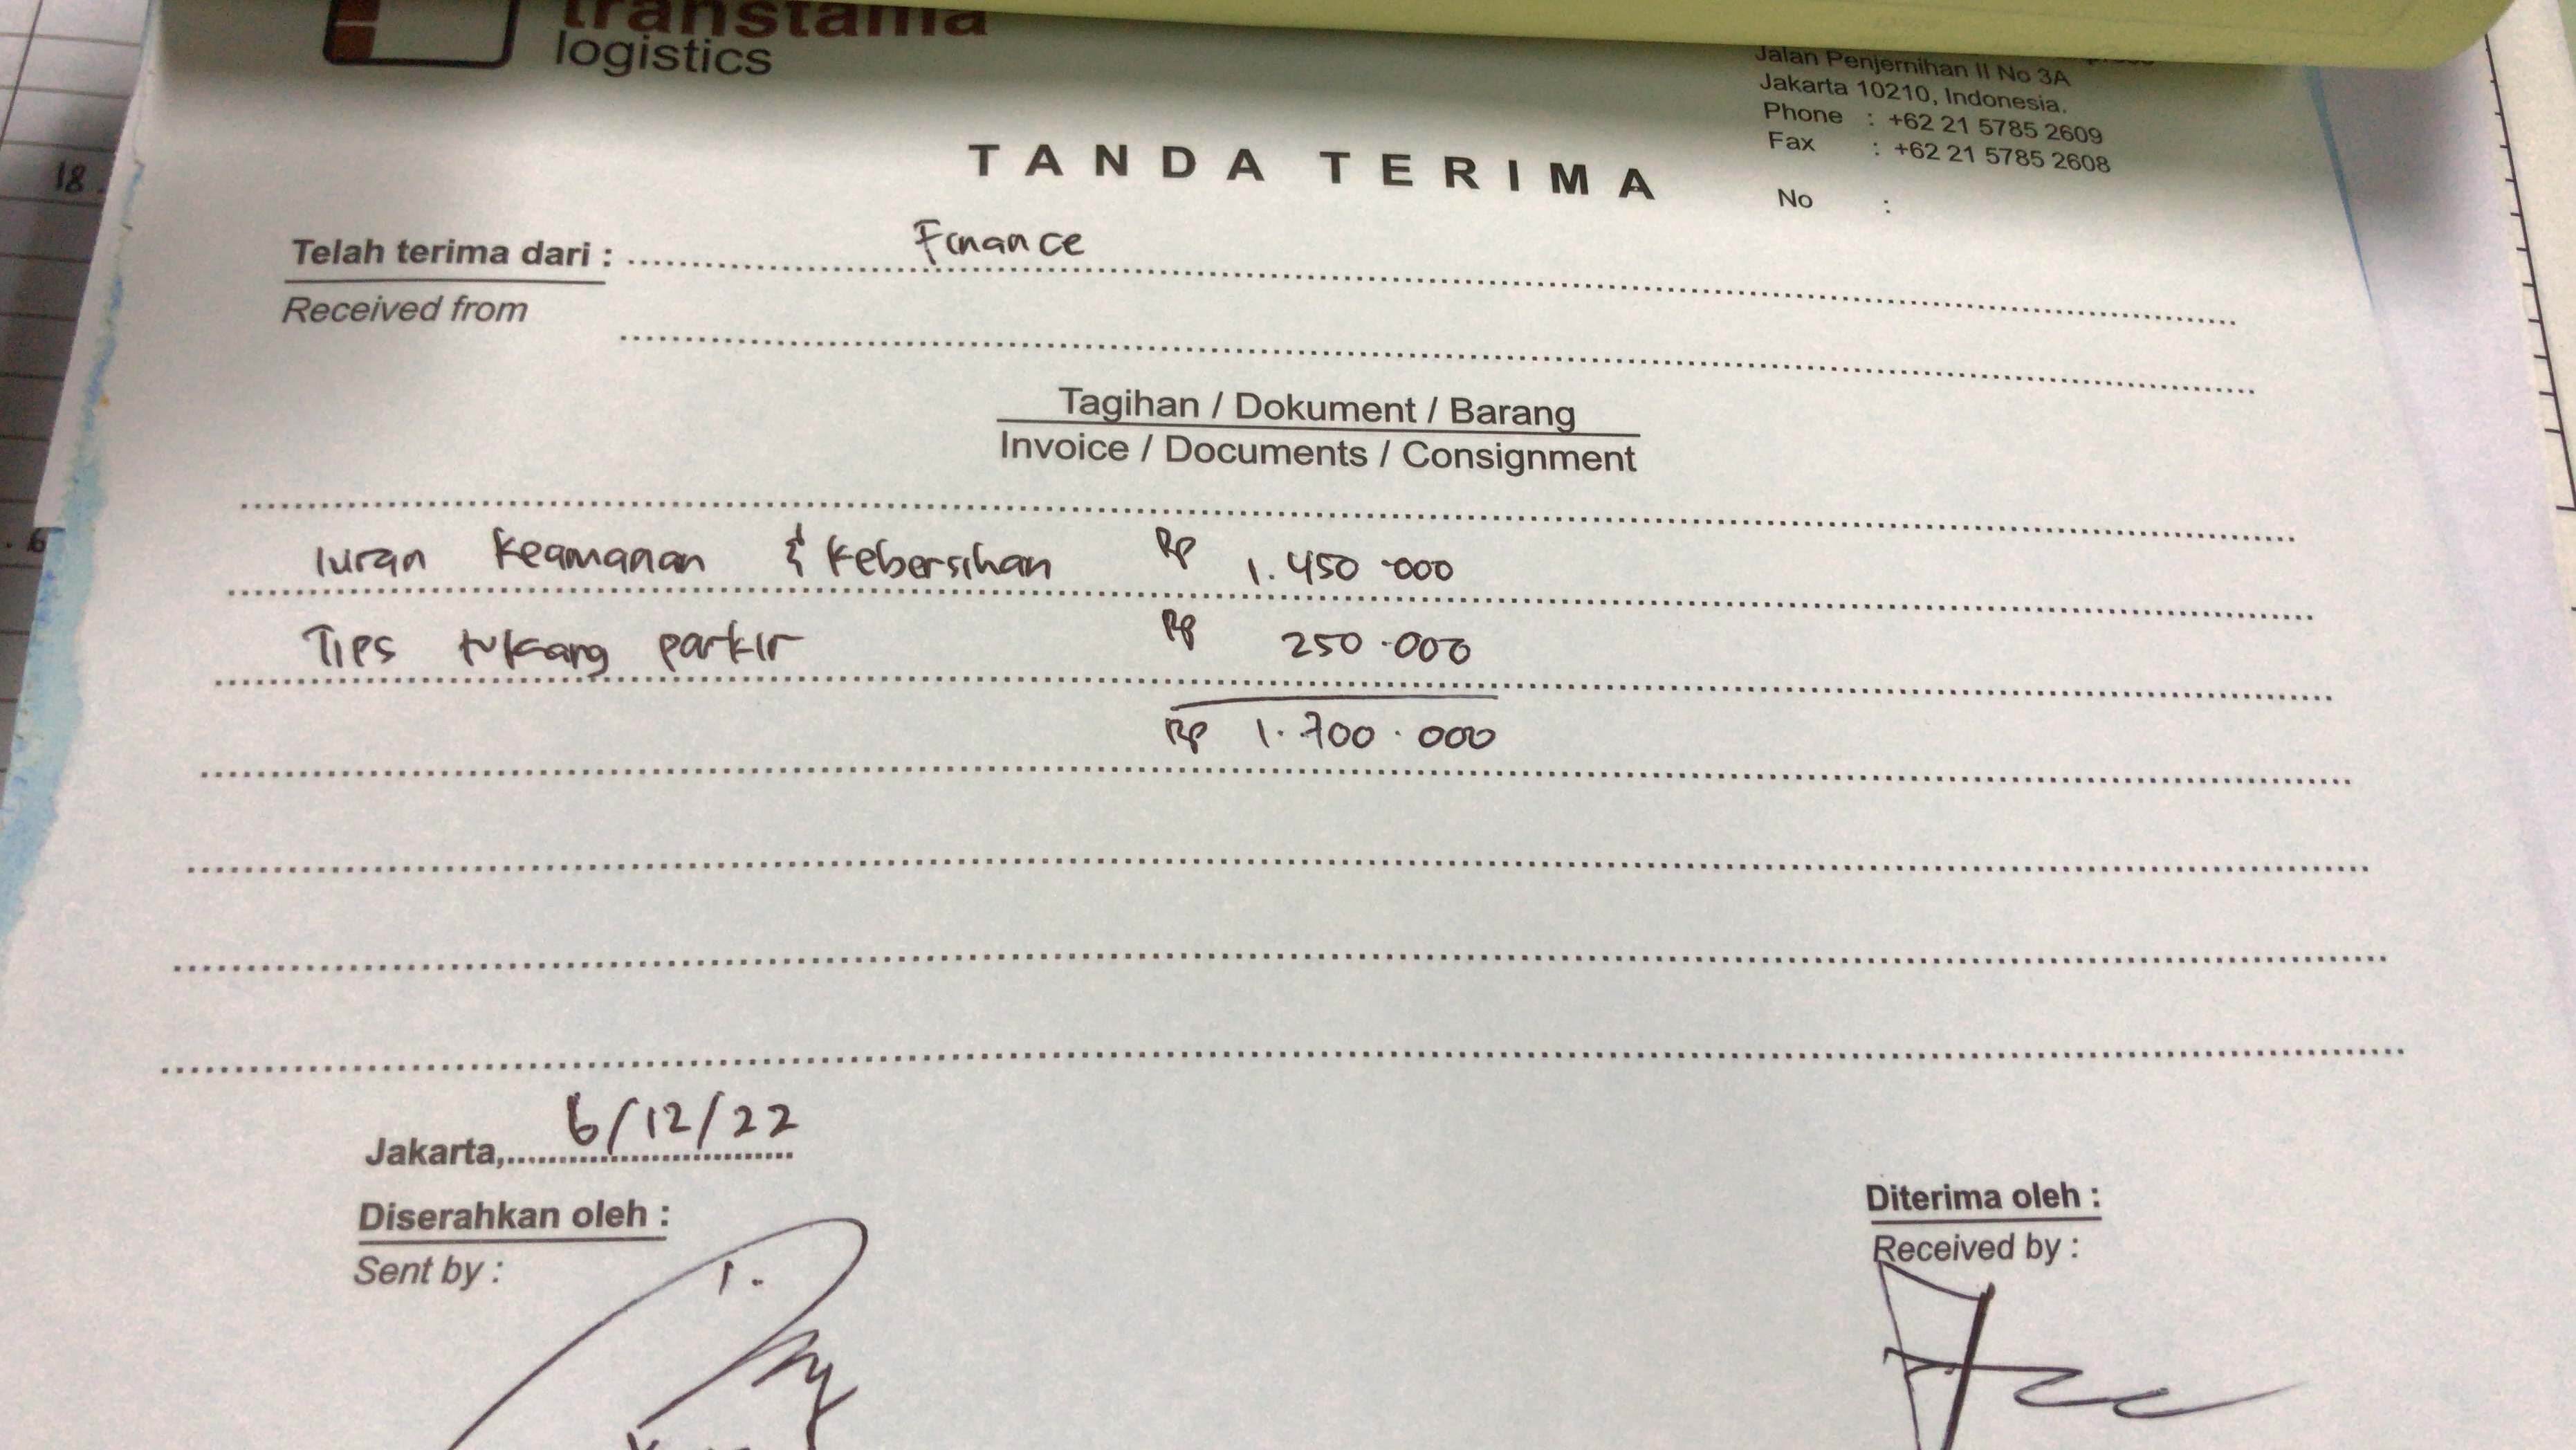 transtama
logistics
Jalan Penjernihan II No 3A
Jakarta 10210, Indonesia.
Phone : +62 21 5785 2609
Fax : +62 21 5785 2608
TANDA TERIMA
No :
Telah terima dari : Finance
Received from
Tagihan / Dokument / Barang
Invoice / Documents / Consignment
Iuran Keamanan & Kebersihan Rp 1.450.000
Tips tukang parkir Rp 250.000
Rp 1.700.000
Jakarta, 6/12/22
Diserahkan oleh :
Sent by :
Diterima oleh :
Received by :
18.